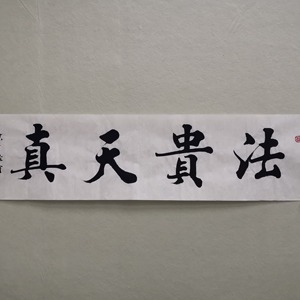 法貴天真